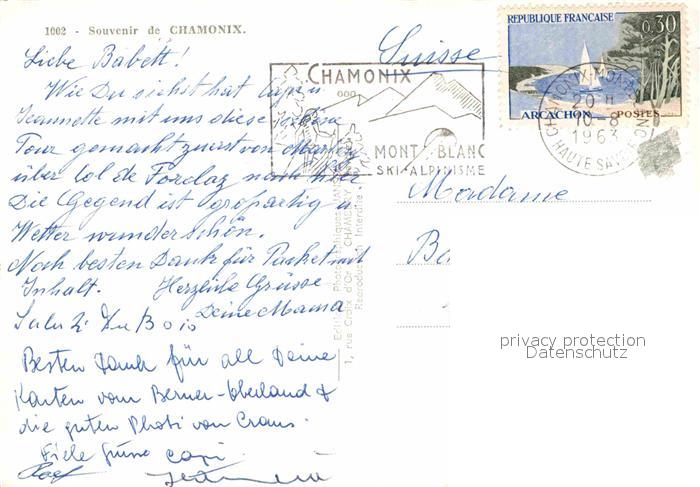 1002 - Souvenir de CHAMONIX.
Liebe Babett!
Wie Du siehst hat capri
Jeannette mit uns diese schöne
Tour gemacht zuerst von
über Col de Forclaz nach hier
Die Gegend ist großartig u.
Wetter wunderschön.
Noch besten Dank für Packet mit
Inhalt. Herzliche Grüsse
Deine Mama
Besten Dank für all Deine
Karten vom Berner-Oberland &
die guten Photi von Crans.
Viele Grüsse capri
CHAMONIX
MONT BLANC
SKI-ALPINISME
Suisse
REPUBLIQUE FRANÇAISE
0,30
ARCACHON POSTES
CHAMONIX-MONT
20 H
10-8
1963
HAUTE SAVOIE
Madame
Ba
1, rue Croix d'Or - CHAMBERY
Reproduction Interdite
privacy protection
Datenschutz